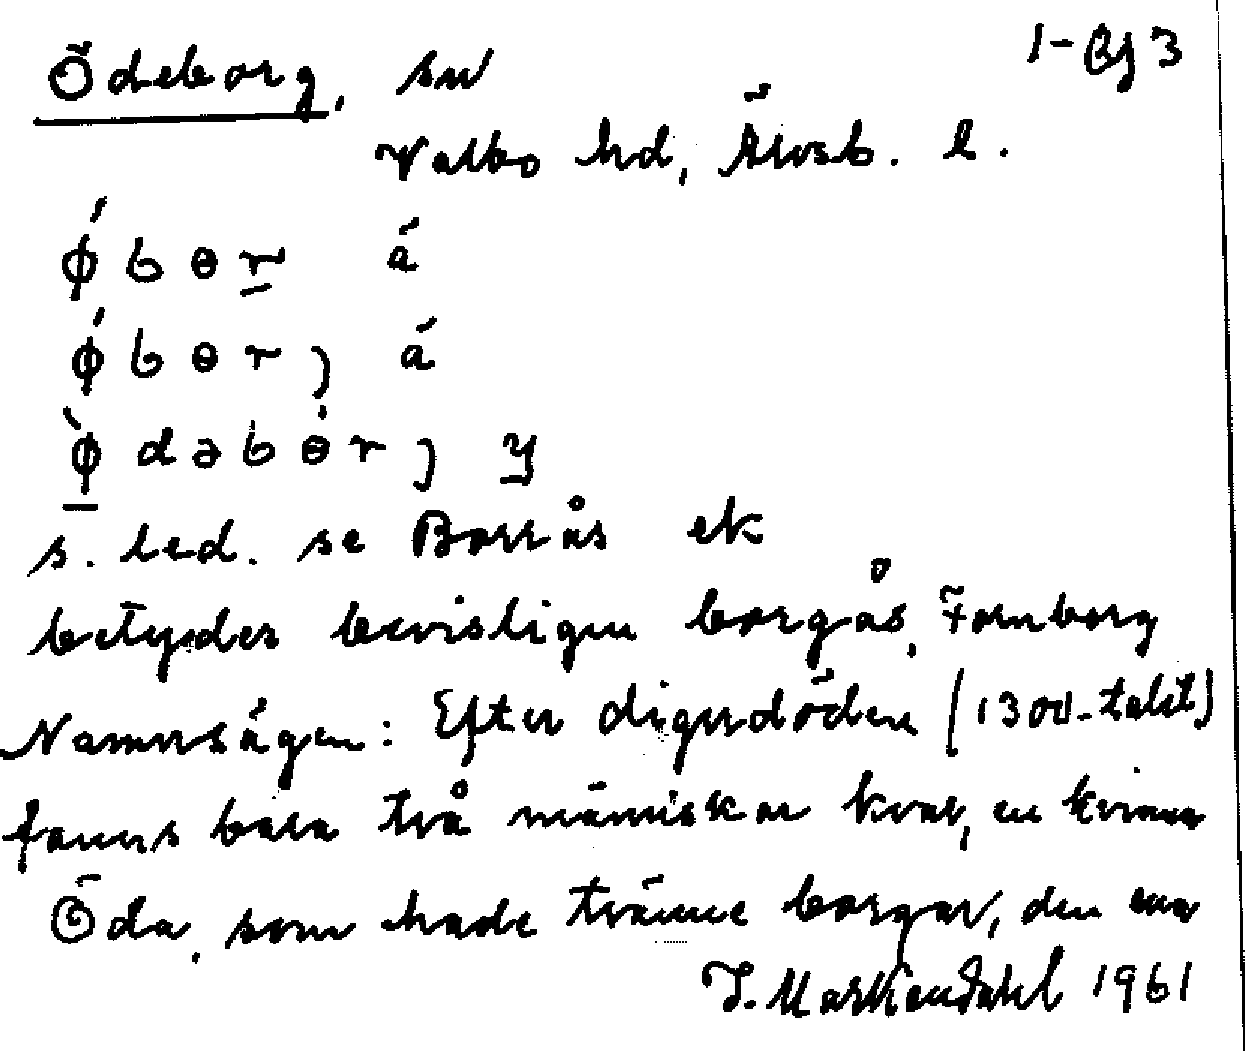 Ödeborg, sn
Valbo hd, Älvsb. l.
ǿ b ɵ r á
ǿ b ɵ r j á
ø̀ d ə b ɵ r j y
s. led. se Borrås ek
betyder bevisligen borgås, Fornborg
Namnsägen: Efter digerdöden (1300-talet)
fanns bara två människor kvar, en kvinna
Öda, som hade tränne borgar, den ena
1961